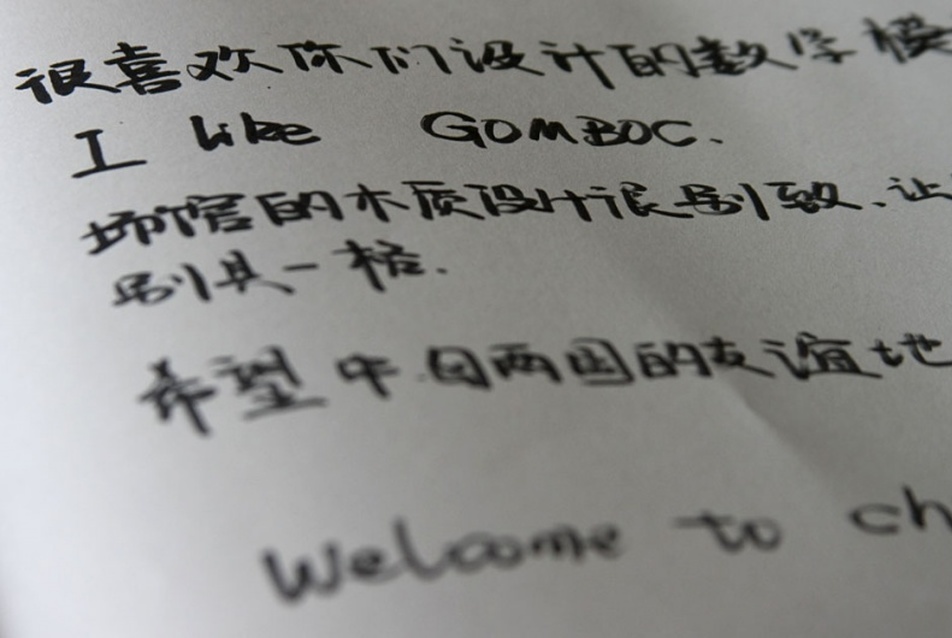 很喜欢你们设计的数学模
I like GOMBOC.
场馆的木质设计很别致,让
别具一格.
希望中匈两国的友谊地
Welcome to ch